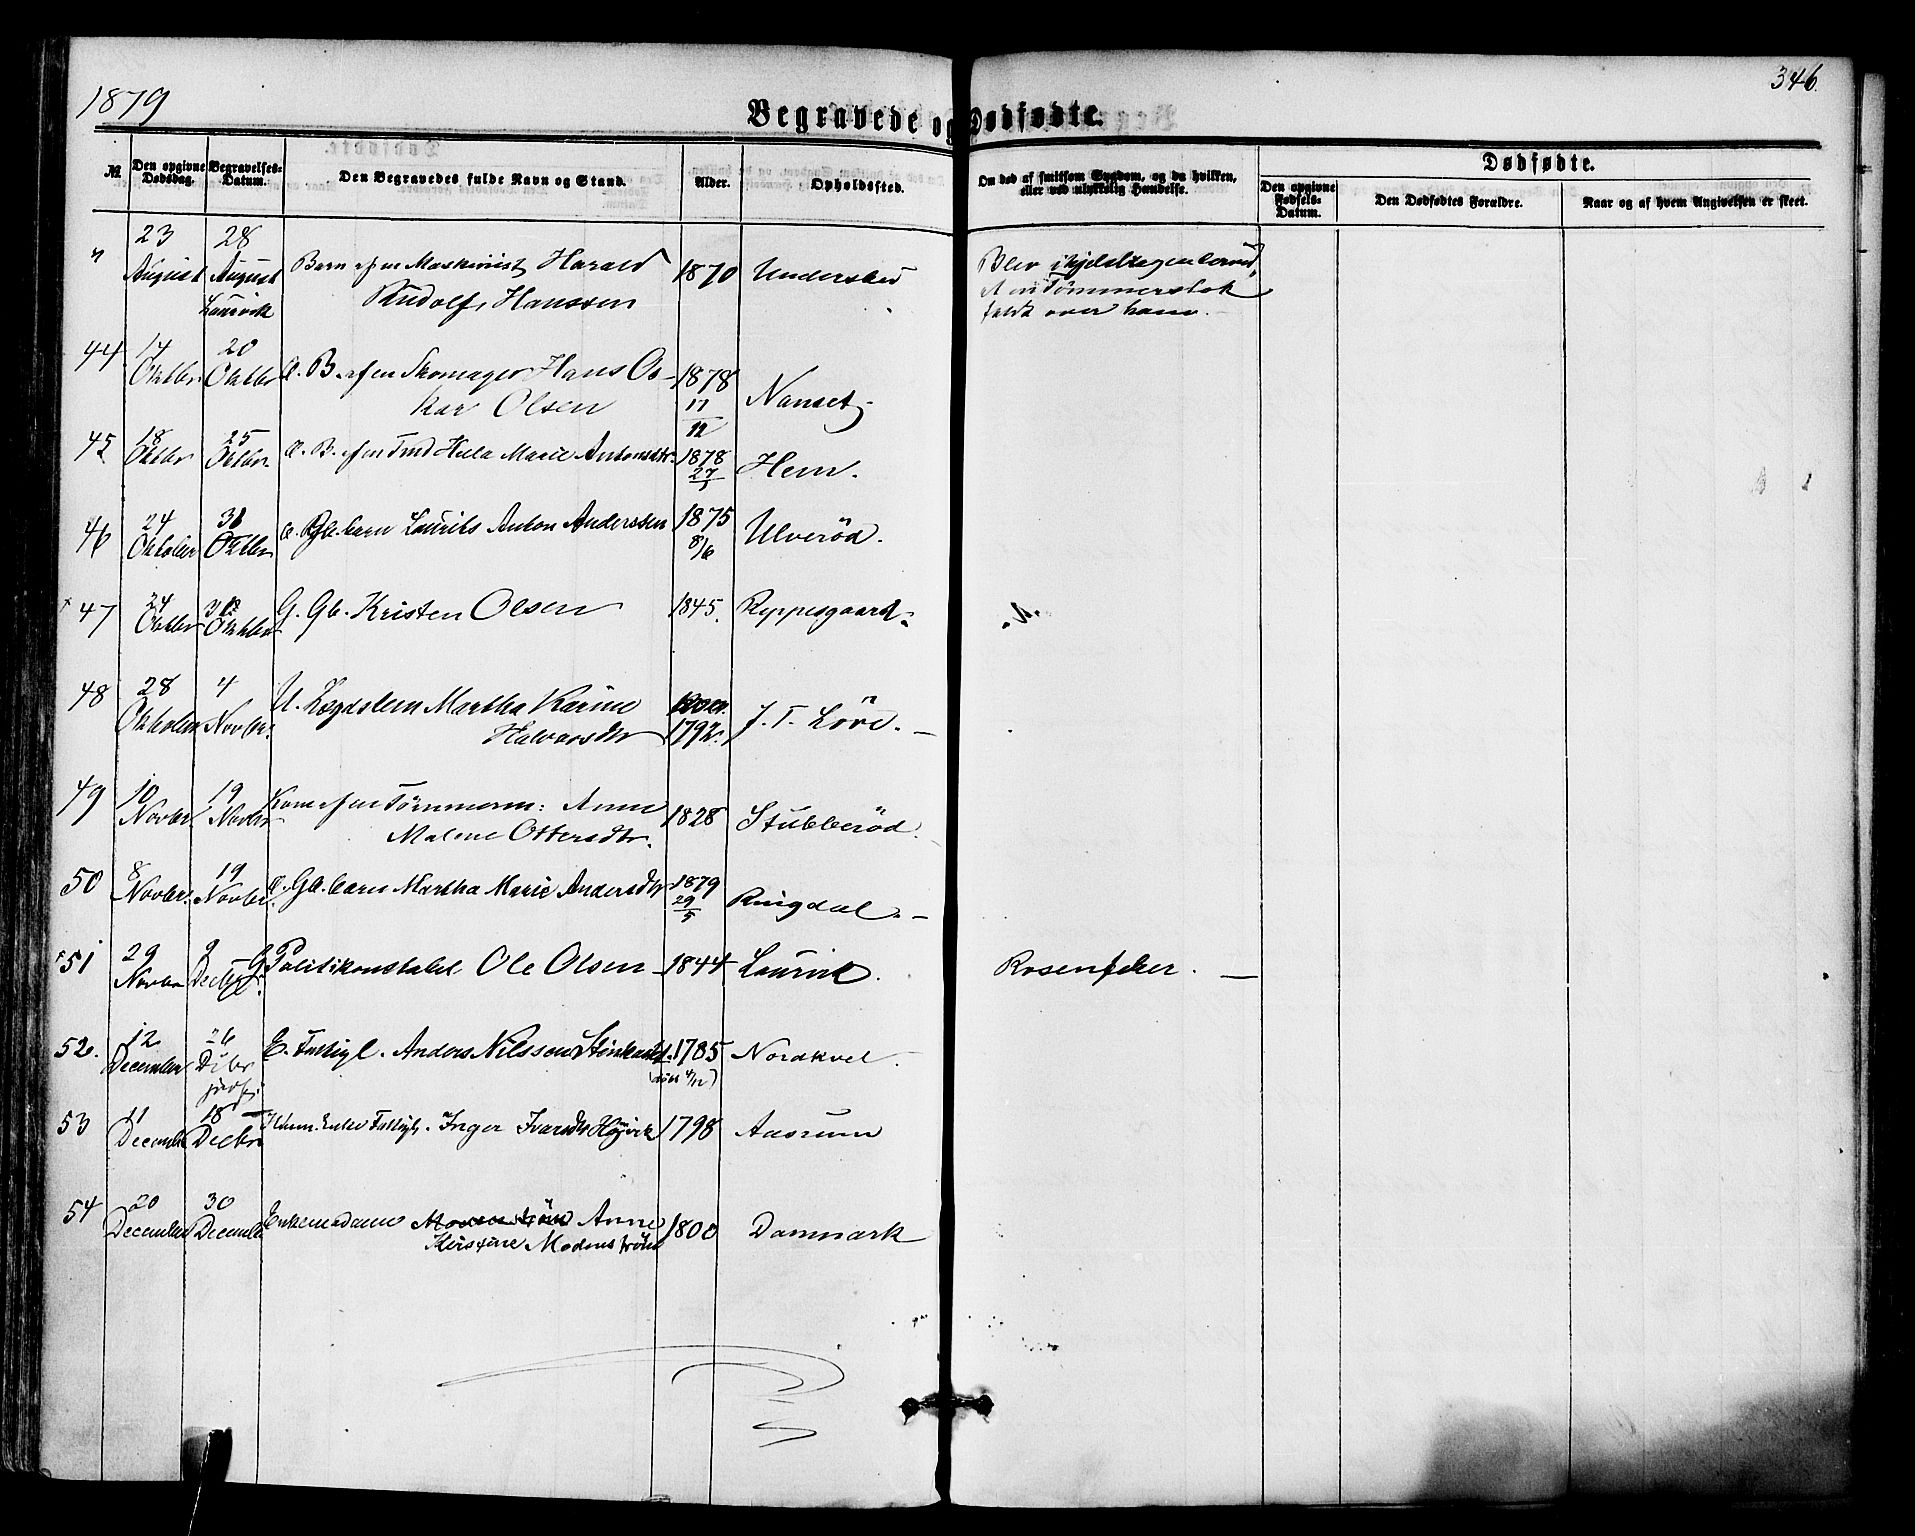 1879
346.
Begravede og Dødfødte.
№
Den opgivne Dødsdag.
Begravelses-Datum.
Den Begravedes fulde Navn og Stand.
Alder.
Opholdssted.
Om død af smitsom Sygdom, og da hvilken, eller ved ulykkelig Hændelse.
Dødfødte.
Den opgivne Fødsels-Datum.
Den Dødfødtes Forældre.
Naar og af hvem Angivelsen er skeet.
" 23 August 28 August Laurvik Barn af en Maskinist Harald 1870 Undersbo Blev ihjelslagen derved,
Rudolf Hanssen at en Tømmerstok
faldt over ham.
44 14 Oktbr 20 Oktbr B. af en Skomager Hans Os- 1878 Nanset
kar Olsen 11/12
45 18 Oktbr 25 Oktbr B. af en Marie Antonsdtr. 1878 27/5 Hem.
46 24 Oktober 31 Oktbr Gb.barn Laurits Anton Anderssen 1875 8/6 Ulverød.
47 24 Oktbr Oktbr G. Gb. Kristen Olsen 1845. Reppesgaard
48 28 Oktober 4 Novbr. U. Lægdslem Martha Karine J. T. Løve. –
Halvorsdtr 1792.
49 10 Novbr. 19 Novbr Kone af en Tømmerm: Anne 1828 Stubberød.
Malene Ottersdtr.
50 8 Novbr. 19 Novbr. Gb.barn Martha Marie Andersdtr 1879 29/5 Ringdal. –
51 29 Novbr 9 Decbr G. Politikonstabel Ole Olsen – 1844 Laurvik. Rosenfeber. –
52. 12 December 26 Dcbr E. Fattigl. Anders Nilssen 1785 Nordkvel
(døbt 4/12)
53 11 December 18 Decbr Enke Fattigl. Inger Ivarsdtr Høivik 1798 Aasrum
54 20 December 30 December Enkemadame Anne 1800 Danmark
Kirstine